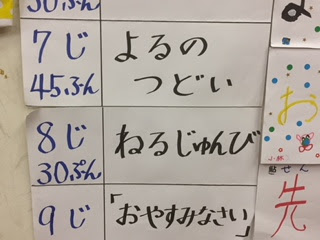 30ぷん
7じ
45ふん
よるの
つどい
8じ
30ぷん
ねるじゅんび
9じ
「おやすみなさい」
お
先